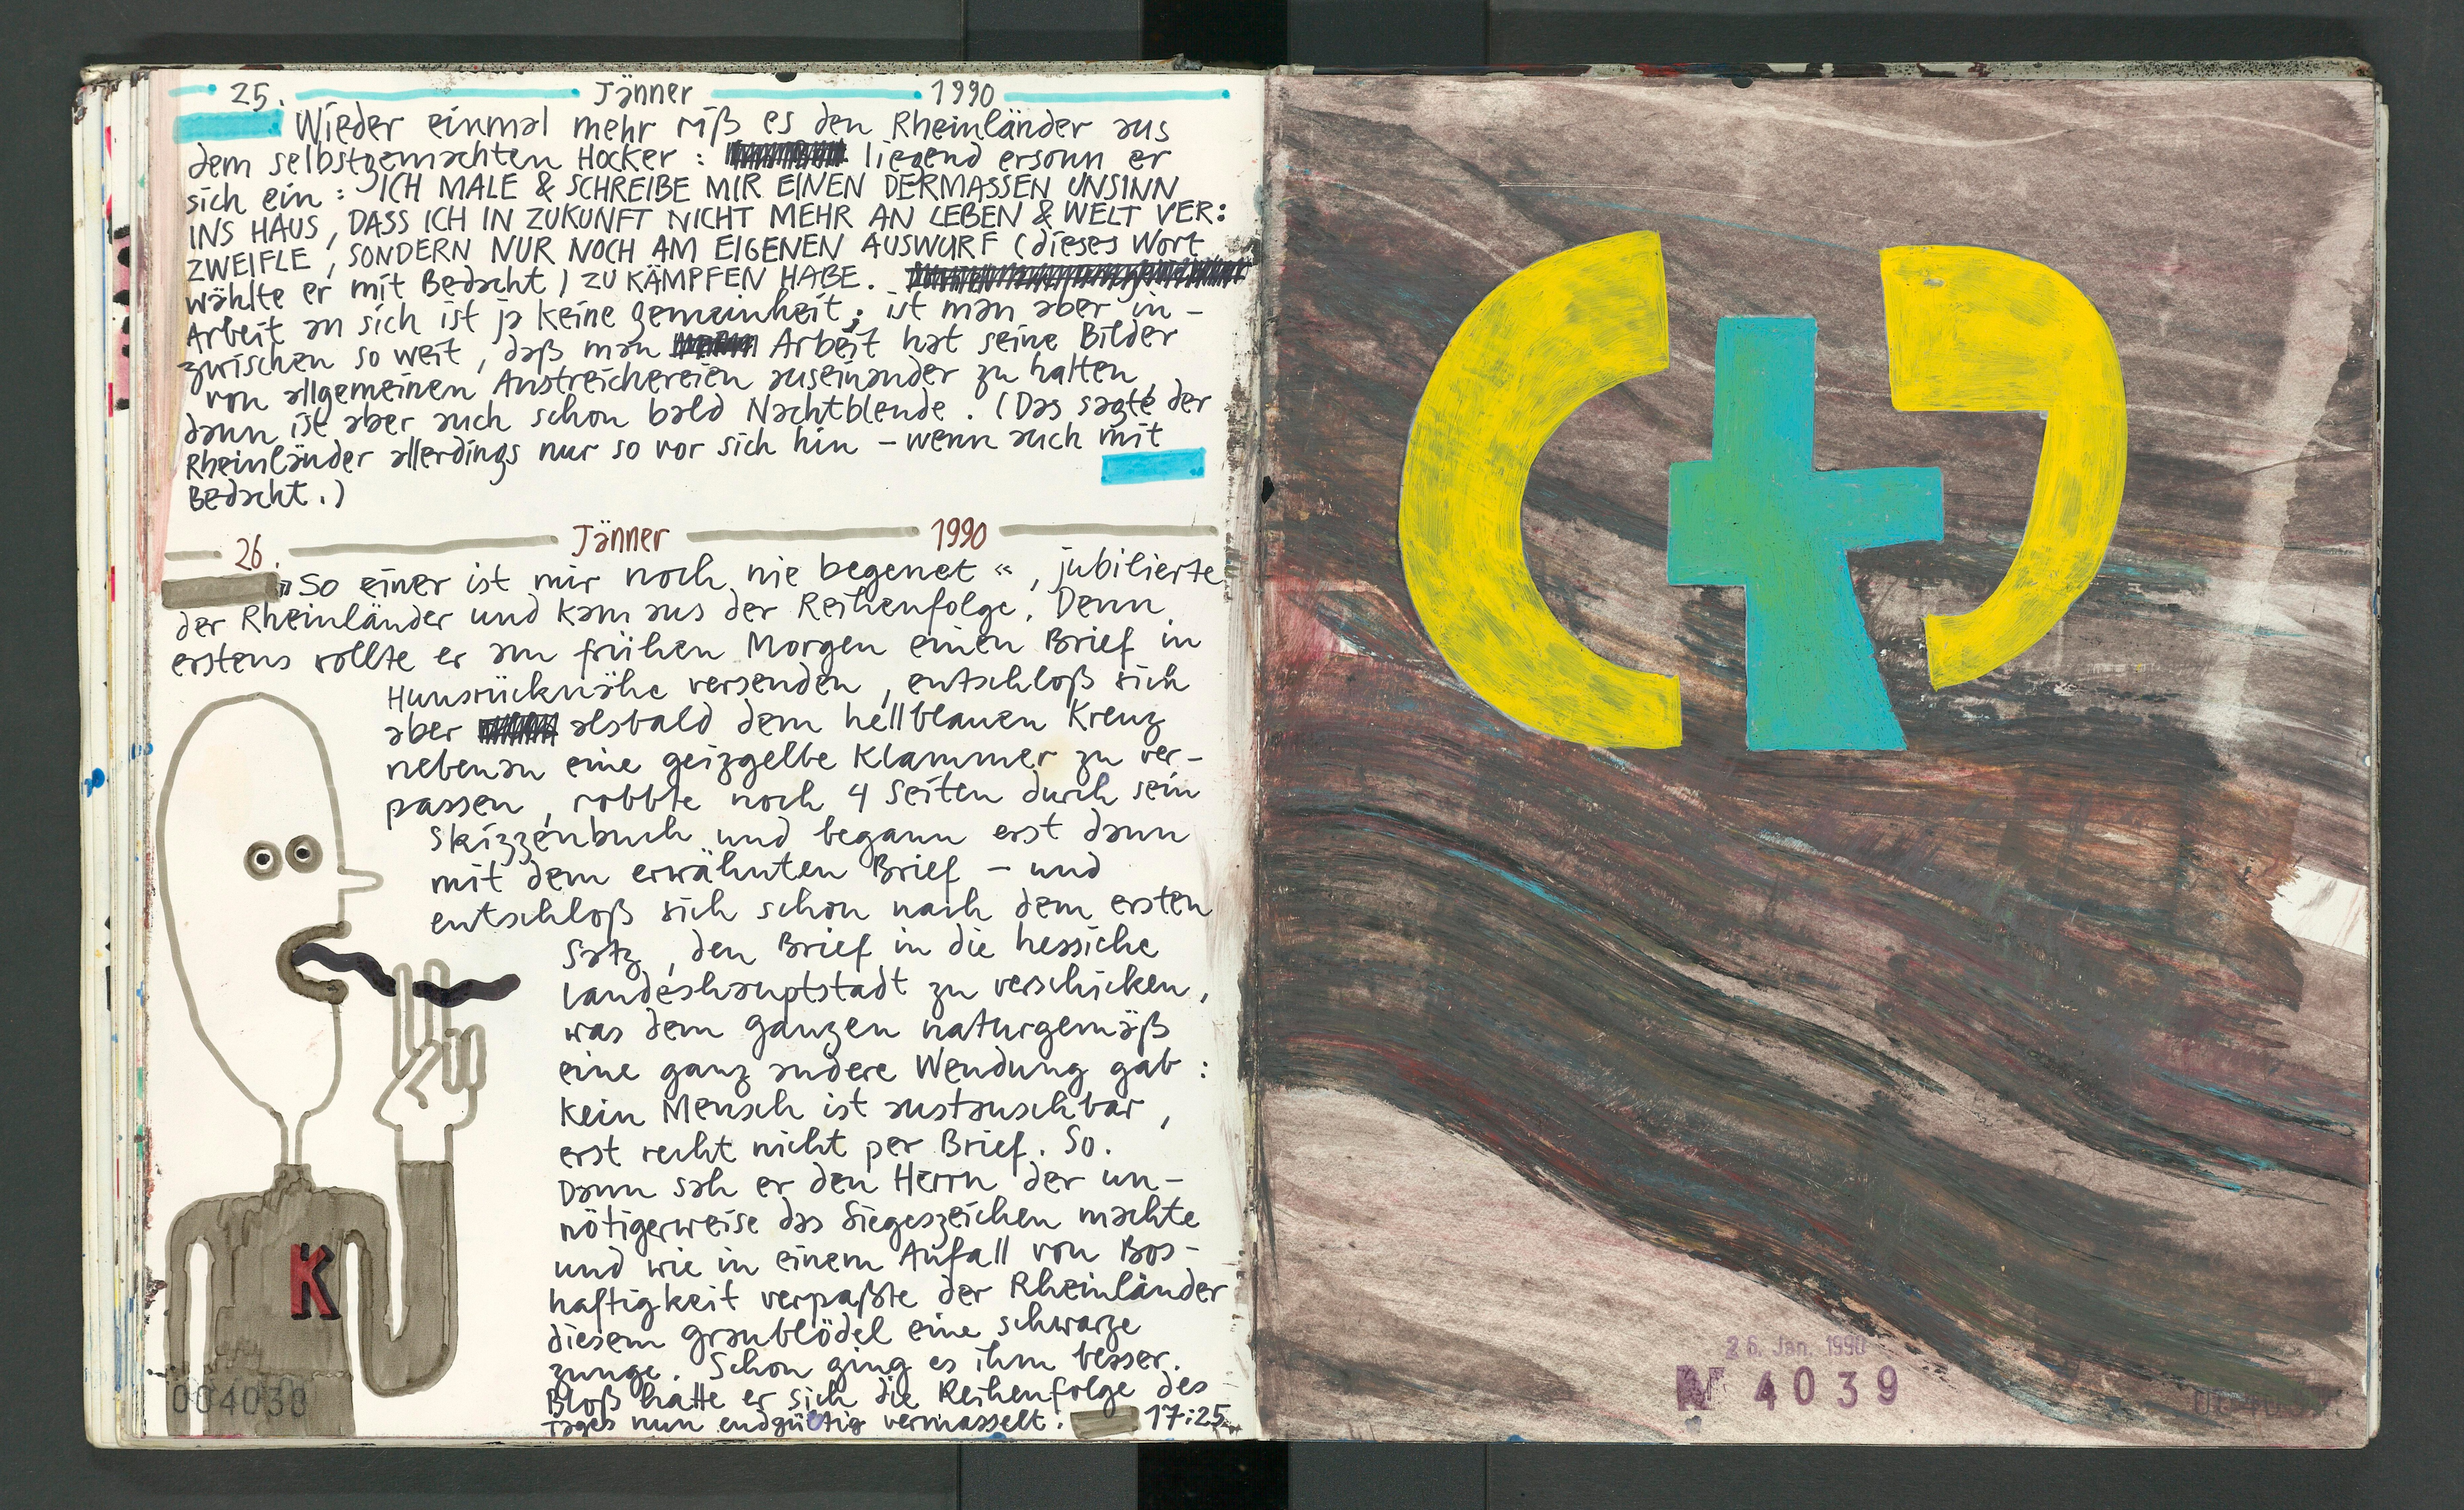 25. Jänner 1990
Wieder einmal mehr riß es den Rheinländer aus
dem selbstgemachten Hocker: liegend ersonn er
sich ein: ICH MALE & SCHREIBE MIR EINEN DERMASSEN UNSINN
INS HAUS, DASS ICH IN ZUKUNFT NICHT MEHR AN LEBEN & WELT VER:
ZWEIFLE, SONDERN NUR NOCH AM EIGENEN AUSWURF (dieses Wort
wählte er mit Bedacht) ZU KÄMPFEN HABE.
Arbeit an sich ist ja keine Gemeinheit; ist man aber in-
zwischen so weit, daß man Arbeit hat seine Bilder
von allgemeinen Anstreichereien auseinander zu halten,
dann ist aber auch schon bald Nachtblende. (Das sagte der
Rheinländer allerdings nur so vor sich hin – wenn auch mit
Bedacht.)
26. Jänner 1990
»So einer ist mir noch nie begenet«, jubilierte
der Rheinländer und kam aus der Reihenfolge. Denn
erstens wollte er am frühen Morgen einen Brief in
Hunsrücknähe versenden, entschloß sich
aber alsbald dem hellblauen Kreuz
nebenan eine geizgelbe Klammer zu ver-
passen, robbte noch 4 Seiten durch sein
Skizzenbuch und begann erst dann
mit dem erwähnten Brief – und
entschloß sich schon nach dem ersten
Satz, den Brief in die hessiche
Landeshauptstadt zu verschicken,
was dem ganzen naturgemäß
eine ganz andere Wendung gab:
Kein Mensch ist austauschbar,
erst recht nicht per Brief. So.
Dann sah er den Herrn der un-
nötigerweise das Siegeszeichen machte
und wie in einem Anfall von Bos-
haftigkeit verpaßte der Rheinländer
diesem Graublödel eine schwarze
Zunge. Schon ging es ihm besser.
Bloß hatte er sich die Reihenfolge des
Tages nun endgültig vermasselt. 17:25
K
004038
26. Jan. 1990
№ 4039